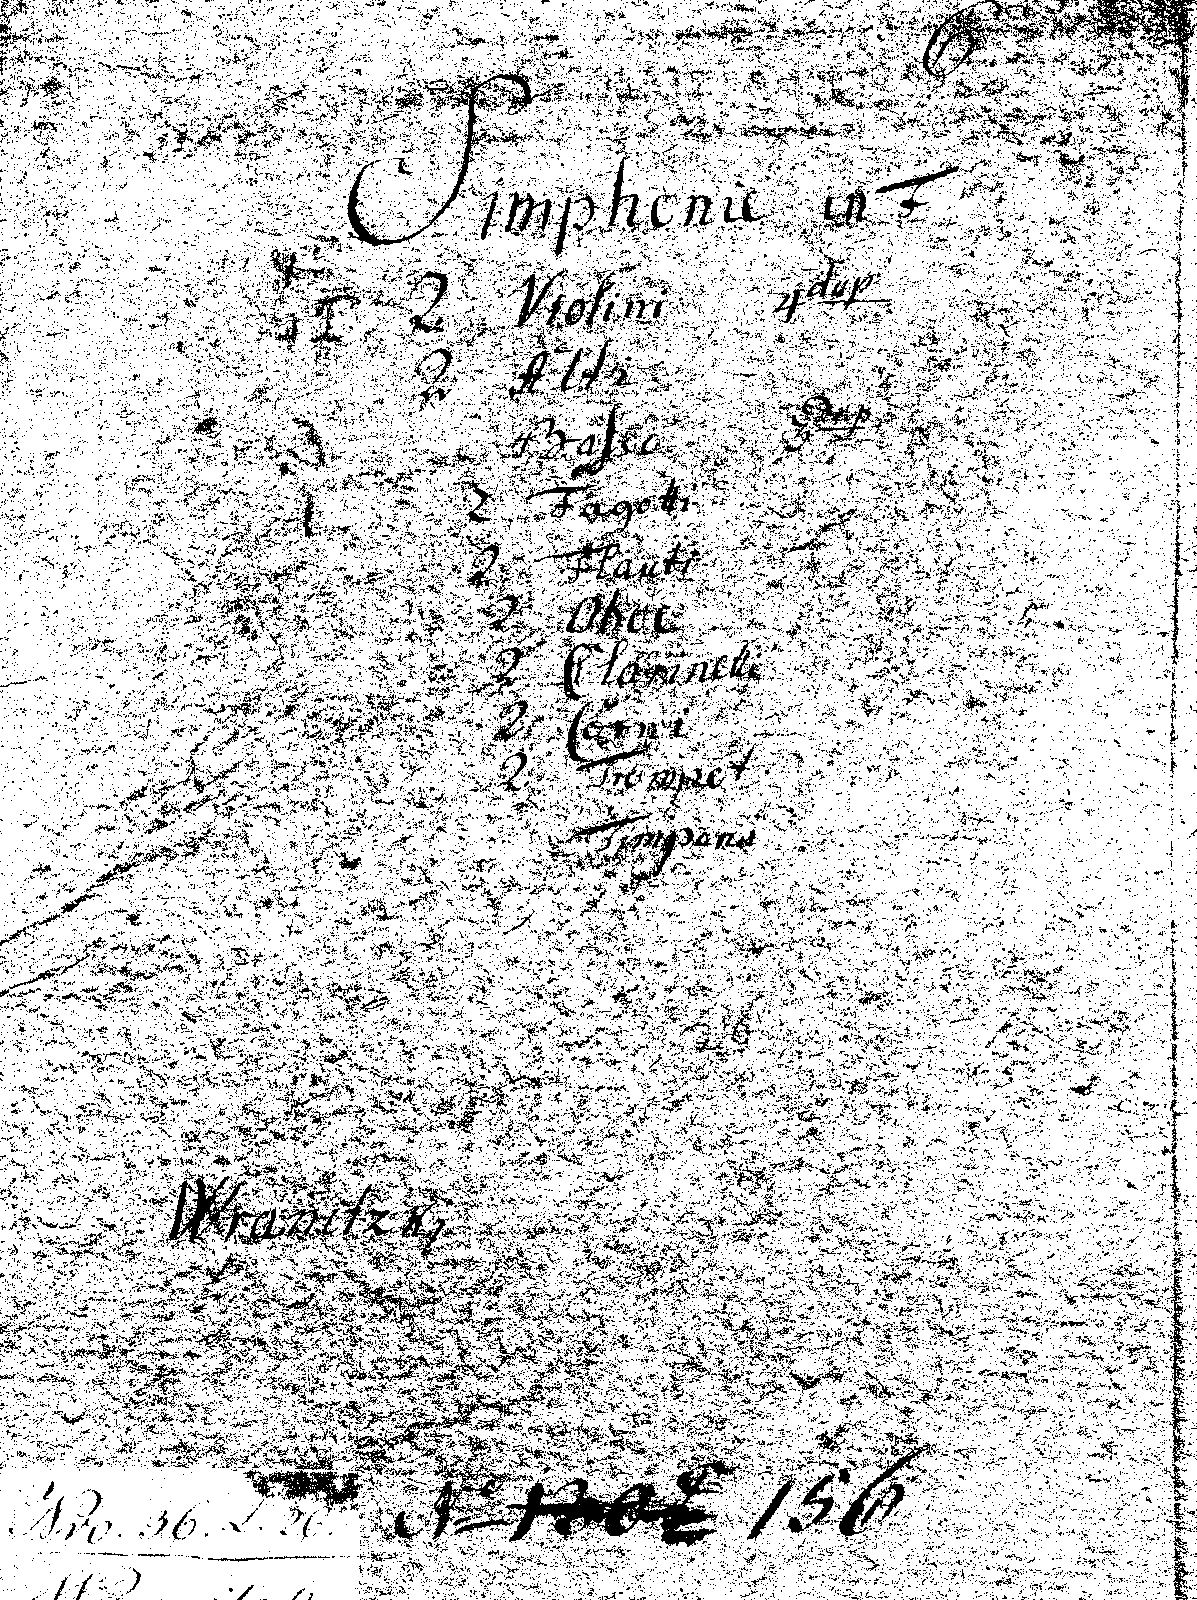 6
Simphonie in F
2 Violini 4 dup
2 Alti
Basso 3 Dup
2 Fagotti
2 Flauti
2 Oboe
2 Clarinetti
2 Corni
2 Trompet
Timpani
Wranitzky
No 156
Nro. 36.